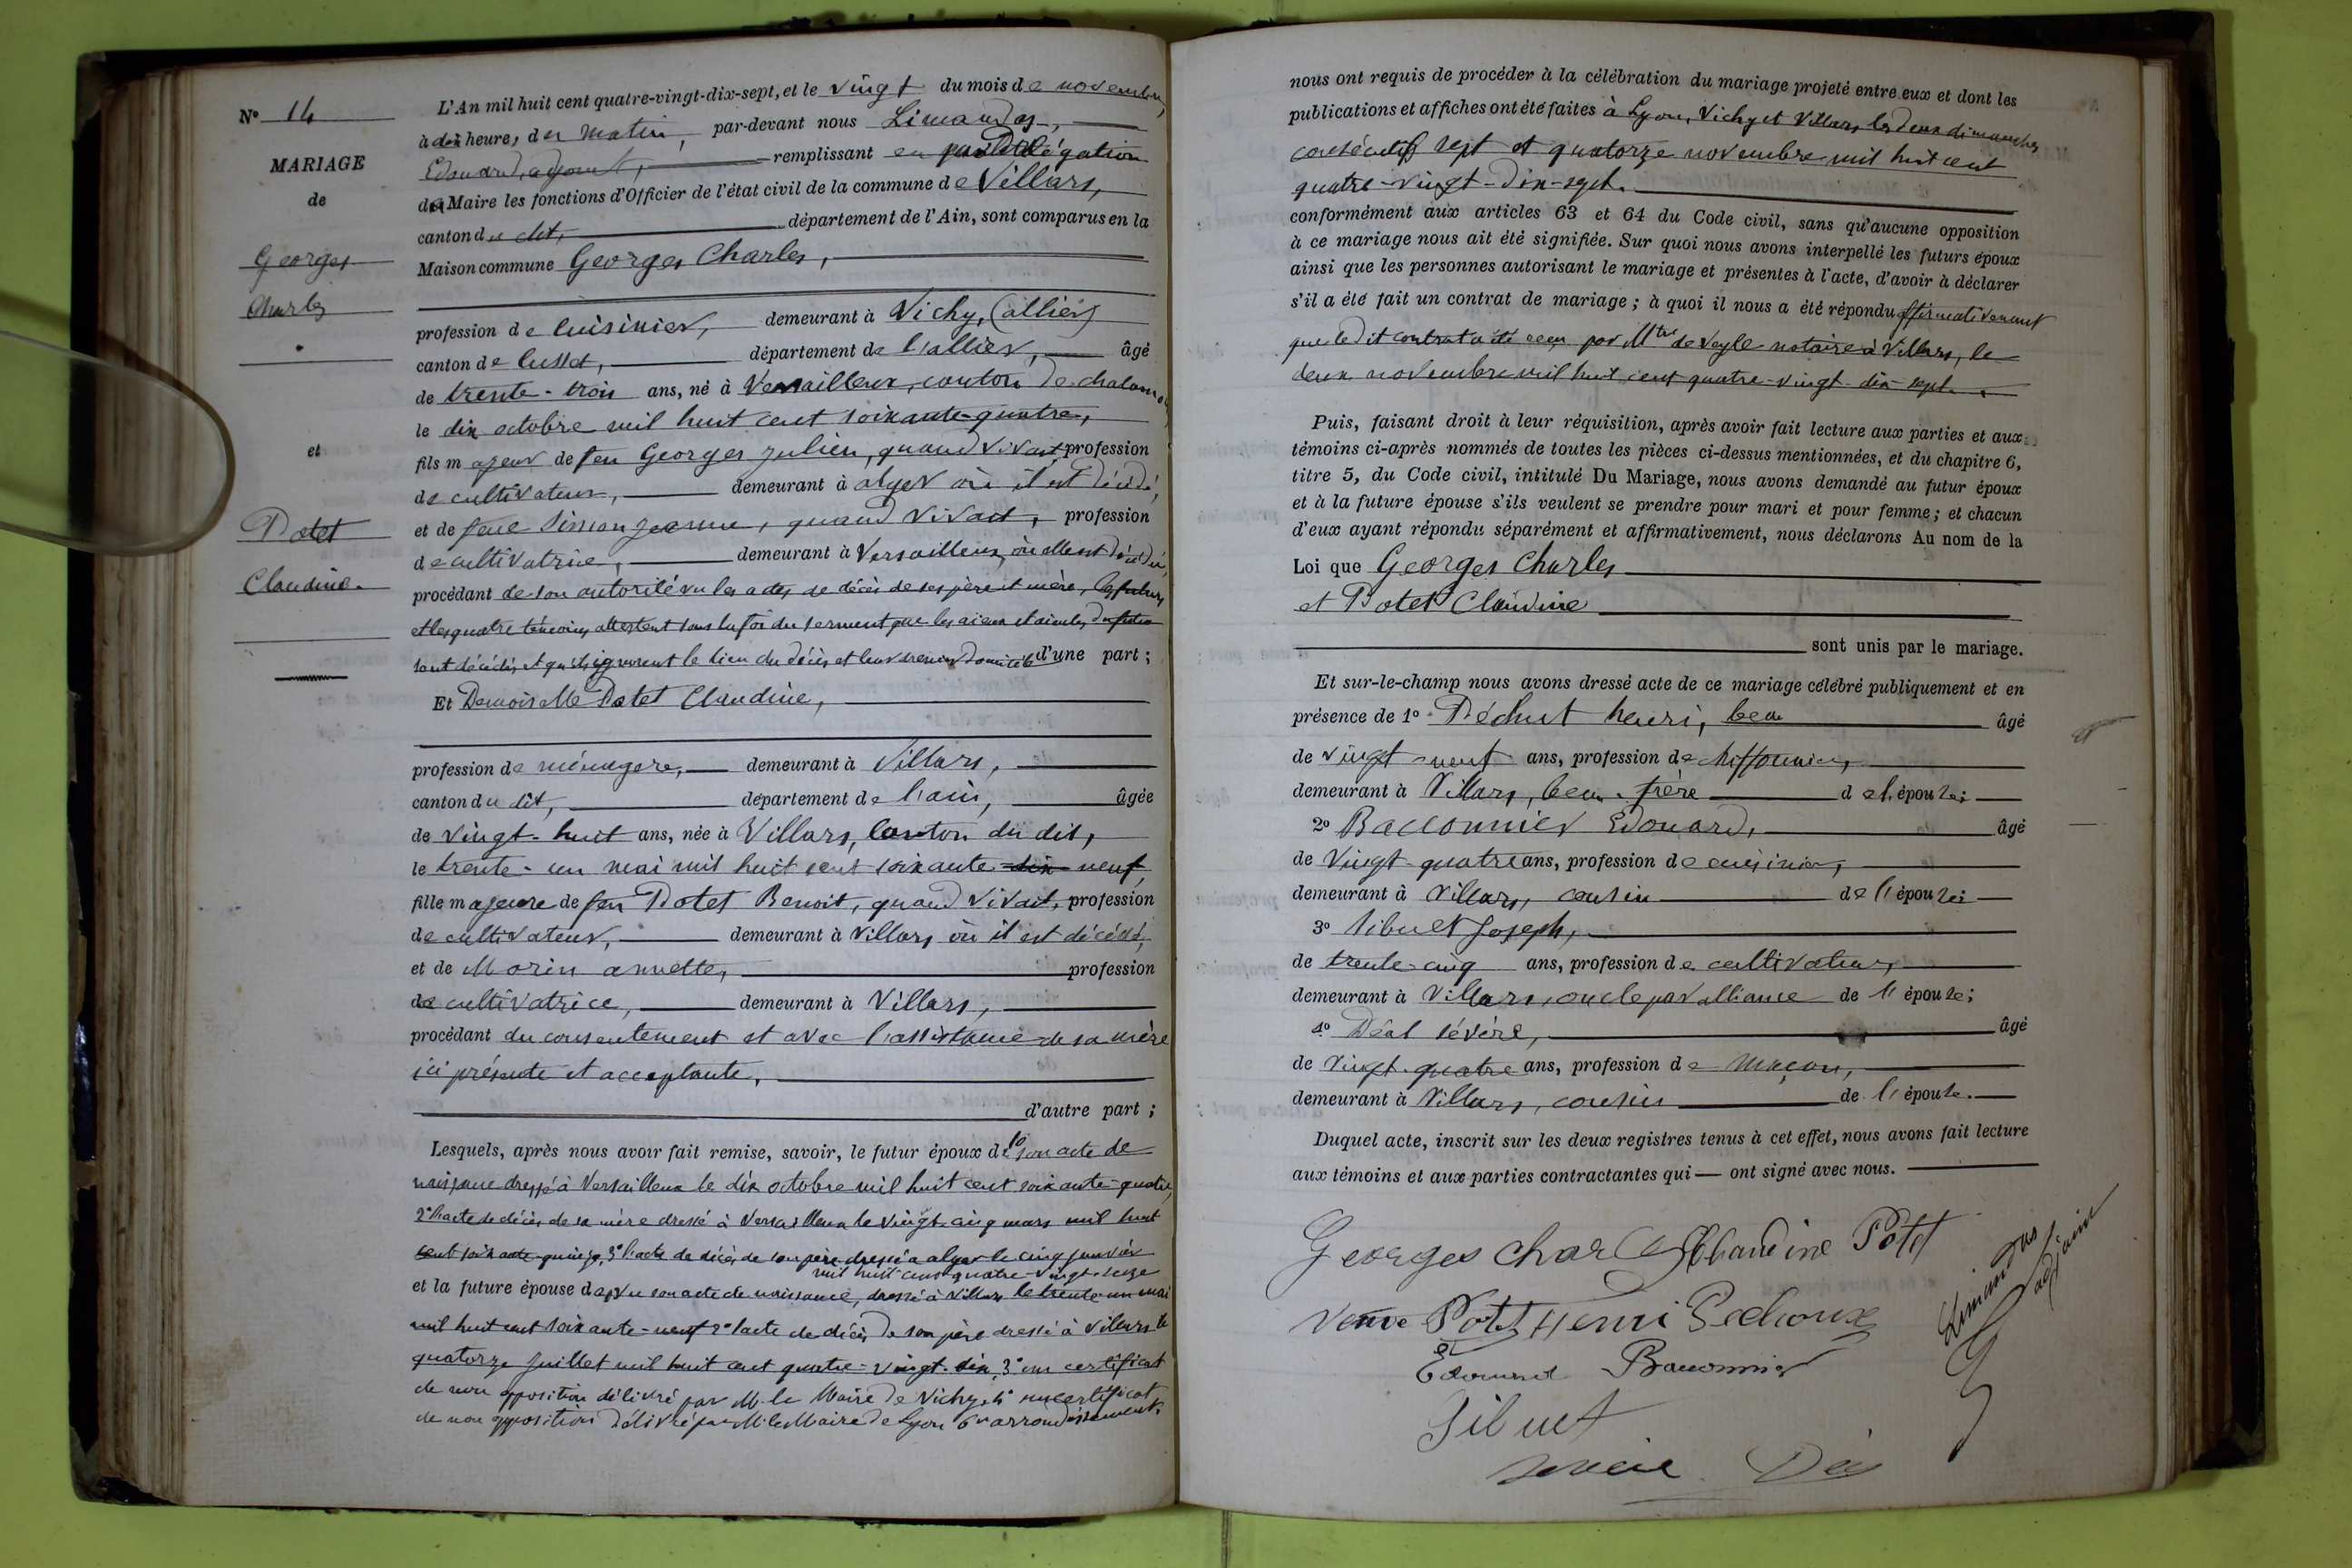 N° 14
MARIAGE
de
Georges
Charles
et
Potet
Claudine.
L'An mil huit cent quatre-vingt-dix-sept, et le vingt du mois de novembre,
à dix heures du matin, par-devant nous Limandas,
Edouard, adjoint, remplissant en par délégation
du Maire les fonctions d'Officier de l'état civil de la commune de Villars,
canton du dit, département de l'Ain, sont comparus en la
Maison commune Georges Charles,
profession de cuisinier, demeurant à Vichy, (allier)
canton de Cusset, département de l'allier, âgé
de trente-trois ans, né à Versailleux, canton de chalamont,
le dix octobre mil huit cent soixante-quatre,
fils majeur de feu Georges Julien, quand vivait profession
de cultivateur, demeurant à alger où il est décédé,
et de feue Simon Jeanne, quand vivait, profession
de cultivatrice, demeurant à Versailleux, où elle est décédée,
procédant de son autorité vu les actes de décès de ses père et mère, les futurs
et les quatre témoins attestent sous la foi du serment que les aïeux et aïeules du futur
sont décédés et qu'ils ignorent le lieu du décès et leur dernier domicile d'une part ;
Et Demoiselle Potet Claudine,
profession de ménagère, demeurant à Villars,
canton du dit, département de l'ain, âgée
de vingt-huit ans, née à Villars, Canton du dit,
le trente-un mai mil huit cent soixante-dix neuf,
fille majeure de feu Potet Benoit, quand vivait, profession
de cultivateur, demeurant à Villars où il est décédé,
et de Morin annette, profession
de cultivatrice, demeurant à Villars,
procédant du consentement et avec l'assistance de sa mère
ici présente et acceptante,
d'autre part ;
Lesquels, après nous avoir fait remise, savoir, le futur époux de 1° son acte de
naissance dressé à Versailleux le dix octobre mil huit cent soixante-quatre,
2° l'acte de décès de sa mère dressé à Versailleux le vingt-cinq mars mil huit
cent soixante-quinze, 3° l'acte de décès de son père dressé à alger le cinq janvier
mil huit cent quatre-vingt-seize
et la future épouse de son acte de naissance, dressé à Villars le trente-un mai
mil huit cent soixante-neuf 2° l'acte de décès de son père dressé à Villars le
quatorze juillet mil huit cent quatre-vingt-dix, 3° un certificat
de non opposition délivré par M. le Maire de Vichy, 4° un certificat
de non opposition délivré par M. le Maire de Lyon 6me arrondissement.
nous ont requis de procéder à la célébration du mariage projeté entre eux et dont les
publications et affiches ont été faites à Lyon, Vichy et Villars, les deux dimanches
consécutifs sept et quatorze novembre mil huit cent
quatre-vingt-dix-sept.
conformément aux articles 63 et 64 du Code civil, sans qu'aucune opposition
à ce mariage nous ait été signifiée. Sur quoi nous avons interpellé les futurs époux
ainsi que les personnes autorisant le mariage et présentes à l'acte, d'avoir à déclarer
s'il a été fait un contrat de mariage ; à quoi il nous a été répondu affirmativement
que le dit contrat a été reçu par Mtre de Veyle notaire à Villars, le
deux novembre mil huit cent quatre-vingt-dix-sept.
Puis, faisant droit à leur réquisition, après avoir fait lecture aux parties et aux
témoins ci-après nommés de toutes les pièces ci-dessus mentionnées, et du chapitre 6,
titre 5, du Code civil, intitulé Du Mariage, nous avons demandé au futur époux
et à la future épouse s'ils veulent se prendre pour mari et pour femme ; et chacun
d'eux ayant répondu séparément et affirmativement, nous déclarons Au nom de la
Loi que Georges Charles
et Potet Claudine
sont unis par le mariage.
Et sur-le-champ nous avons dressé acte de ce mariage célébré publiquement et en
présence de 1° Péchut henri, beau âgé
de vingt-neuf ans, profession de chiffonnier,
demeurant à Villars, beau-frère de l'épouse ;
2° Bacconnier Edouard, âgé
de Vingt-quatre ans, profession de cuisinier,
demeurant à Villars, cousin de l'épouse ;
3° Sibuet Joseph,
de trente-cinq ans, profession de cultivateur,
demeurant à Villars, oncle par alliance de l'épouse ;
4° Déal Sévère, âgé
de vingt-quatre ans, profession de maçon,
demeurant à Villars, cousin de l'épouse.
Duquel acte, inscrit sur les deux registres tenus à cet effet, nous avons fait lecture
aux témoins et aux parties contractantes qui — ont signé avec nous.
Georges Charles Claudine Potet
Veuve Potet Henri Pechoux
Limandas
adjoint
Edouard Bacconnier
Sibuet